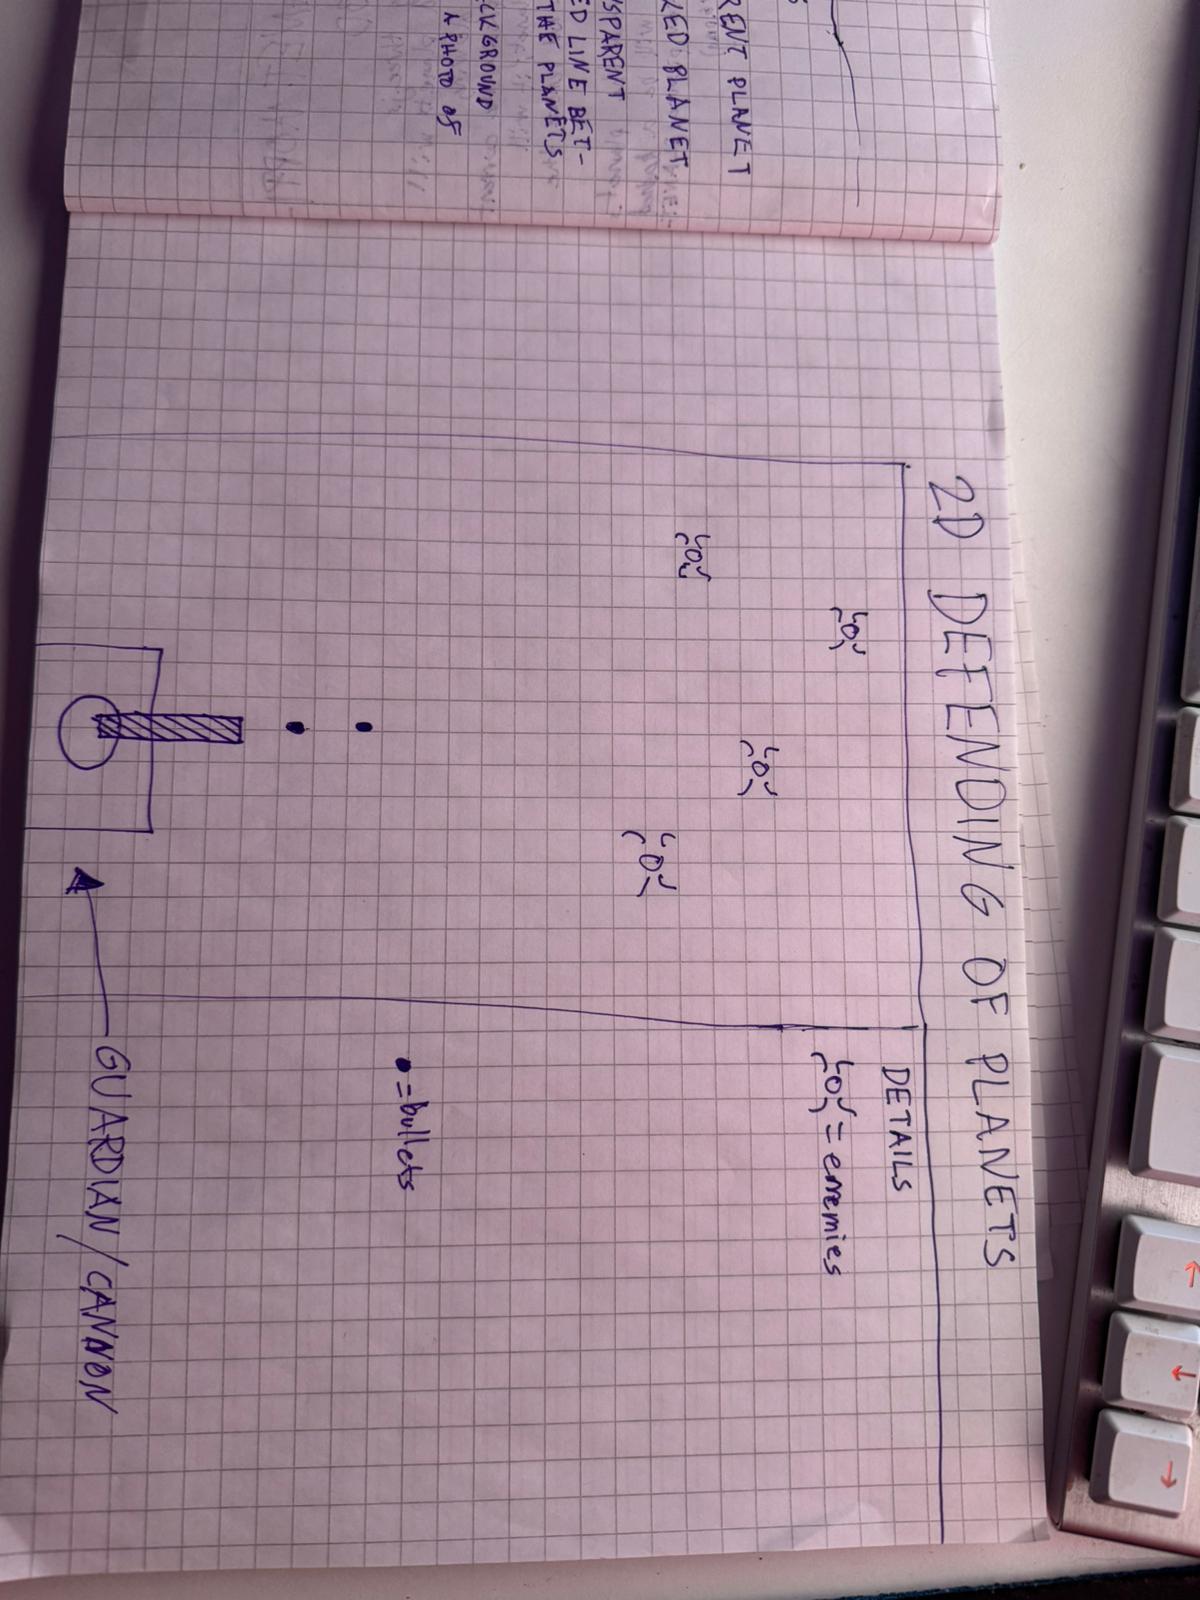 RENT PLANET
KED PLANET
SPARENT
ED LINE BET-
THE PLANETS
CKGROUND
A PHOTO OF
2D DEFENDING OF PLANETS
DETAILS
= enemies
= bullets
GUARDIAN/CANNON